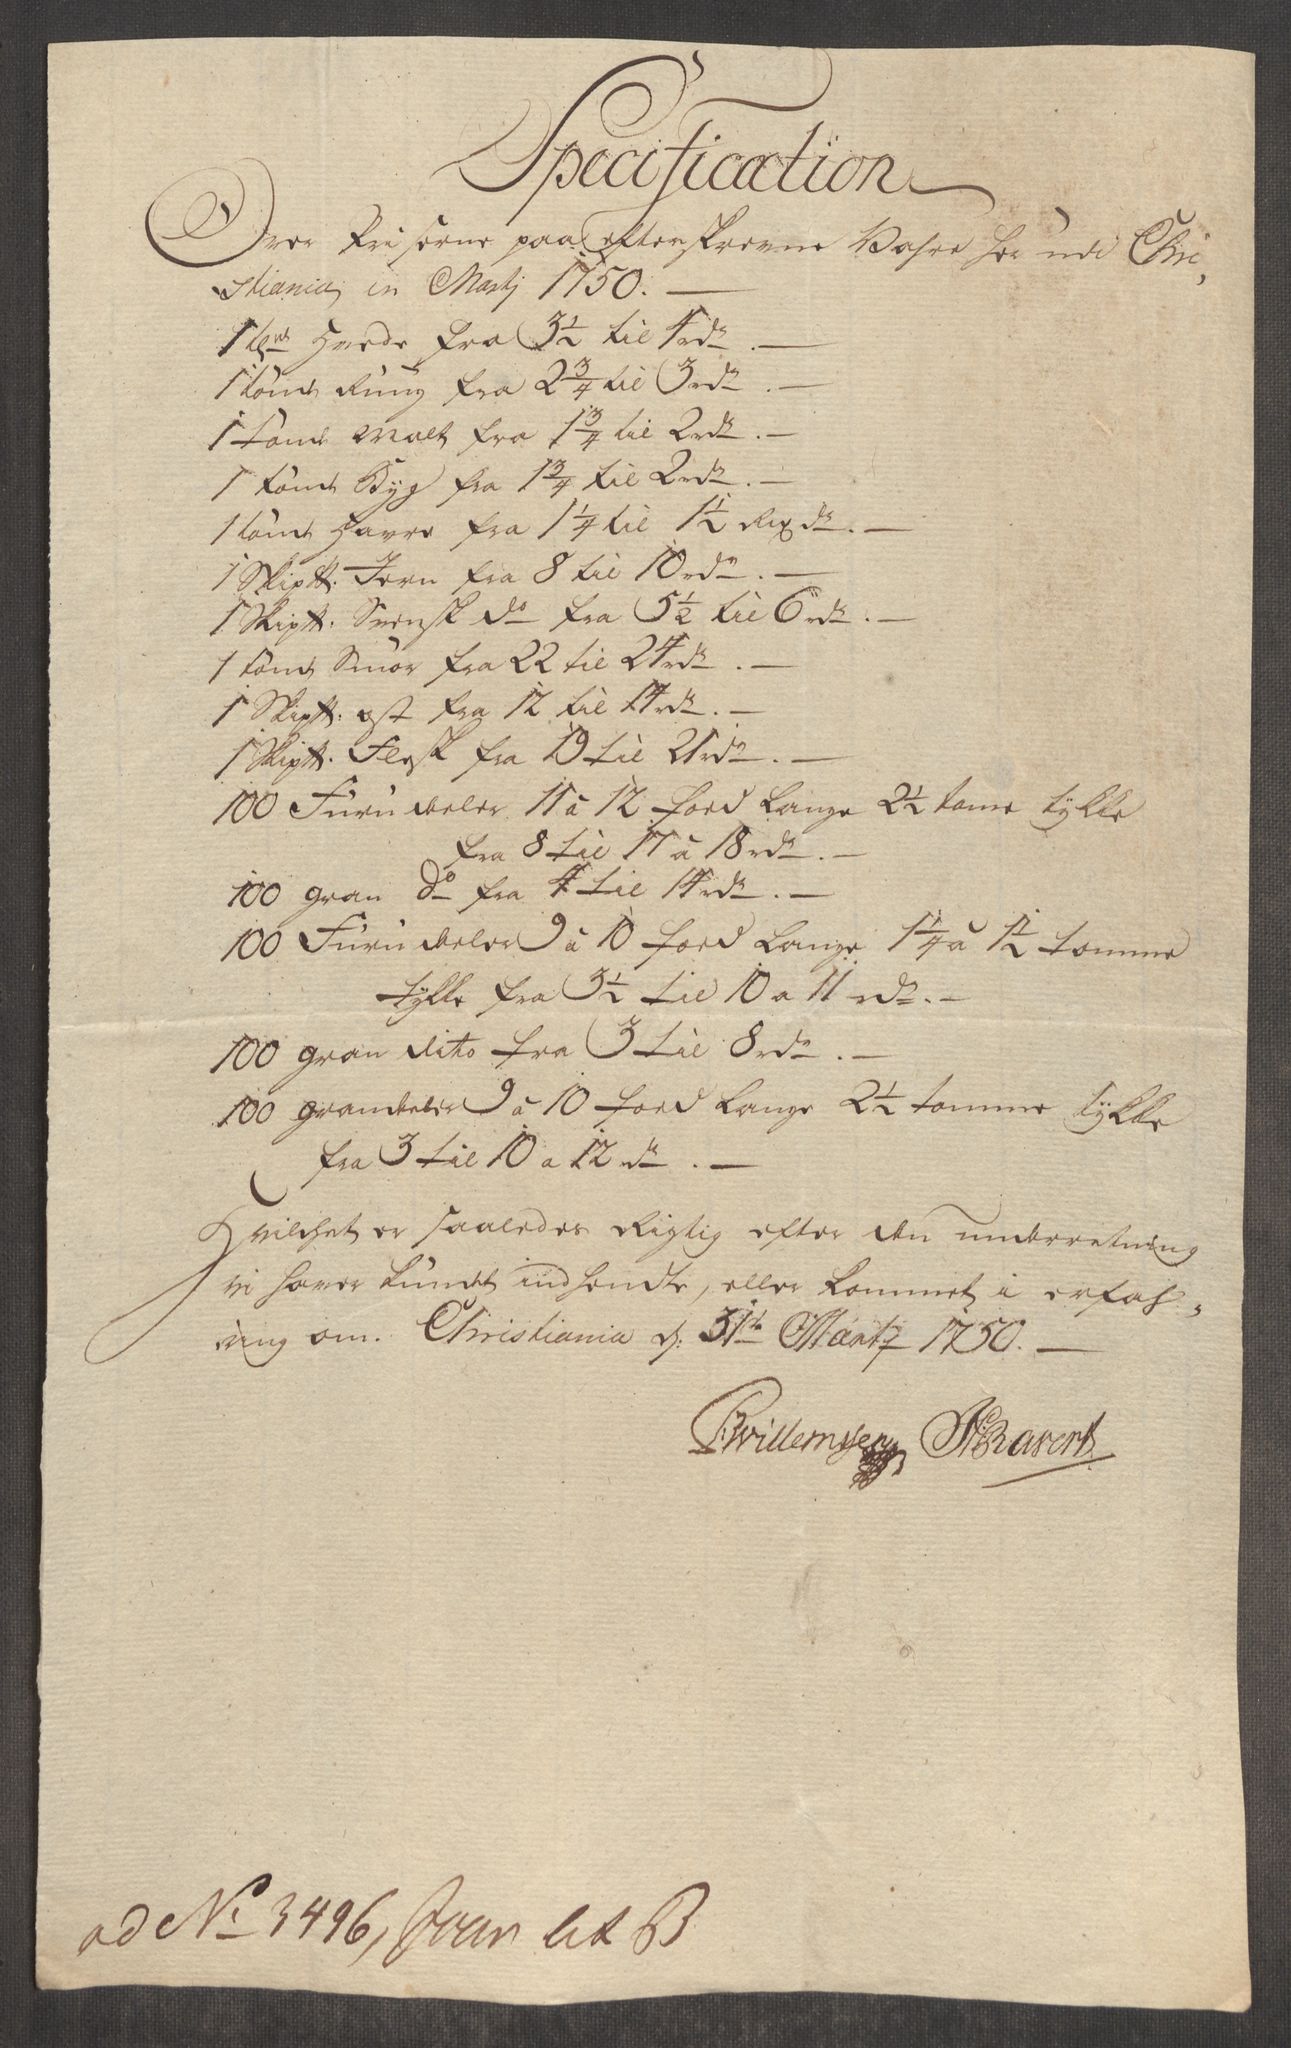 Specification
Over Priserne paa efterskrevne Vahre her udi Chri,
stiania in Martj 1750.
1 Hvede fra 3½ til 4 rdr.
1 tønde Rúug fra 2¾ til 3 rdr.
1 tønde Malt fra 1¾ til 2 rdr.
1 tønde Byg fra 1¾ til 2 rdr.
1 tønde Havre fra 1¼ til 1½ Rixdr.
1 Skip℔. Jern fra 8 til 10 rdr.
1 Skip℔. Svensk do fra 5½ til 6 rdr.
1 tønde Smør fra 22 til 24 rdr.
1 Skip℔. ost fra 12 til 14 rdr.
1 Skip℔. Flesk fra 19 til 21 rdr.
100 Furudeler 11 à 12 foed Lange 2½ tome tykke
fra 8 til 17 à 18 rdr.
100 gran do fra 4 til 14 rdr.
100 Furudeler 9 à 10 foed Lange 1¼ à 1½ tomme
tykke fra 3½ til 10 a 11 rdr.
100 gran dito fra 3 til 8 rdr.
100 grandeler 9 à 10 foed Lange 2½ tomme tykke
fra 3 til 10 a 12 rdr.
Hvilchet er saaledes Rigtig efter den underretning
vi haver kundet indhendte, eller kommet i erfah,
ring om. Christiania d: 31te Martz 1750.
Pwillemsen Ravert
ad No 3496, Jvar Lit B